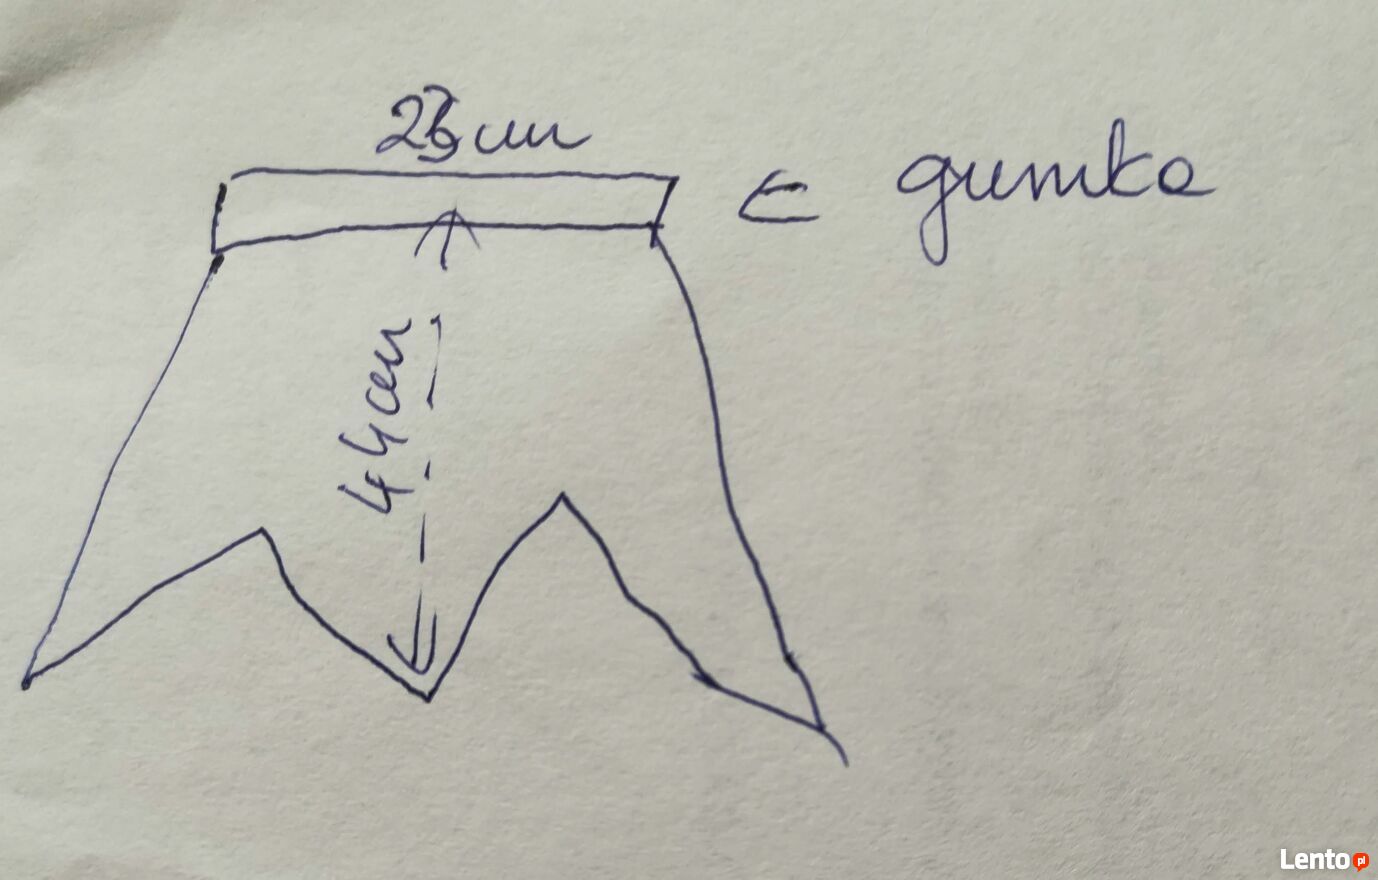 23 cm
← gumka
44 cm
Lento pl